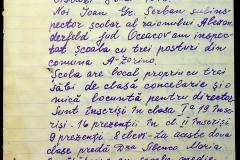 Noi Ioan Gr. Șerban subins-
pector școlar al raionului Alexan-
derfeld jud Oceacov am inspec-
tat școala cu trei posturi din
comuna A-Torino.
Școla are local propriu cu trei
săli de clasă cancelarie și o
mică locuință pentru director.
Sunt înscriși în clasa I-a 19 înscri-
și. 16 prezenți. în cl. II înscriși
9 prezenți 8 elevi. La aceste două
clase predă D-na Sibenco Maria